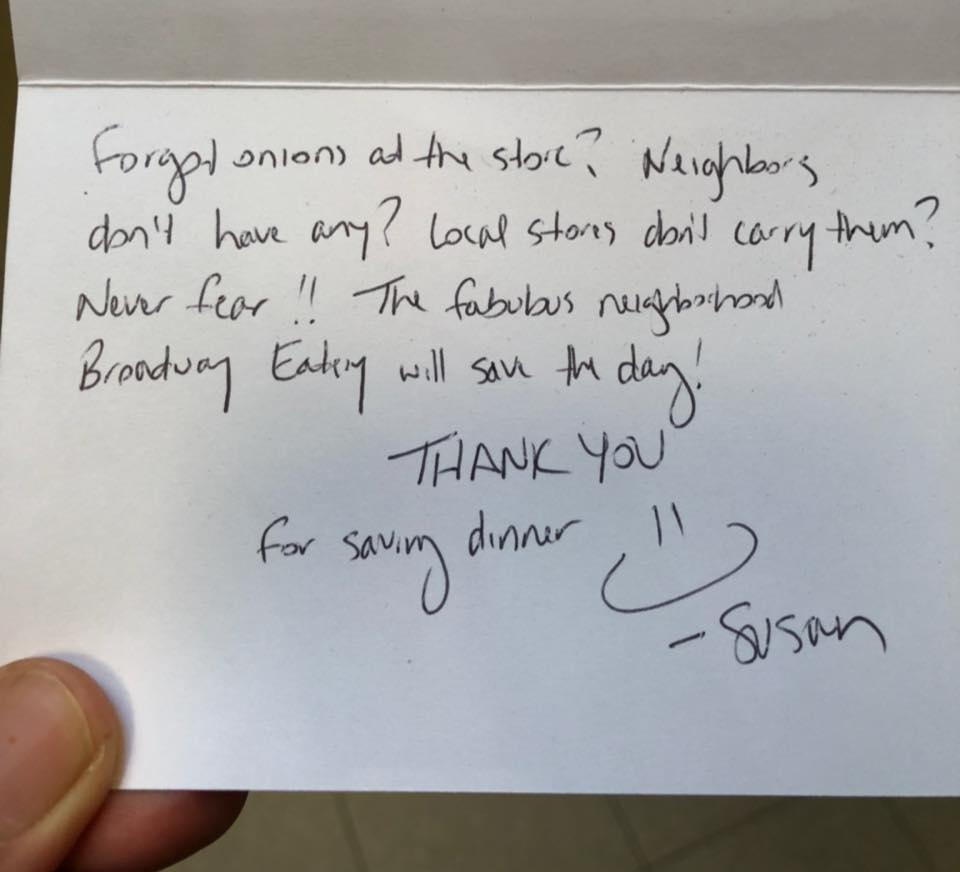 Forgot onions at the store? Neighbors
don't have any? Local stores don't carry them?
Never fear!! The fabulous neighborhood
Broadway Eatery will save the day!
THANK YOU
for saving dinner
- Susan